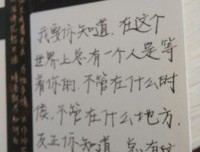 我要你知道，在这个
世界上总有一个人是等
着你的，不管在什么时
候，不管在什么地方，
反正你知道，总有这